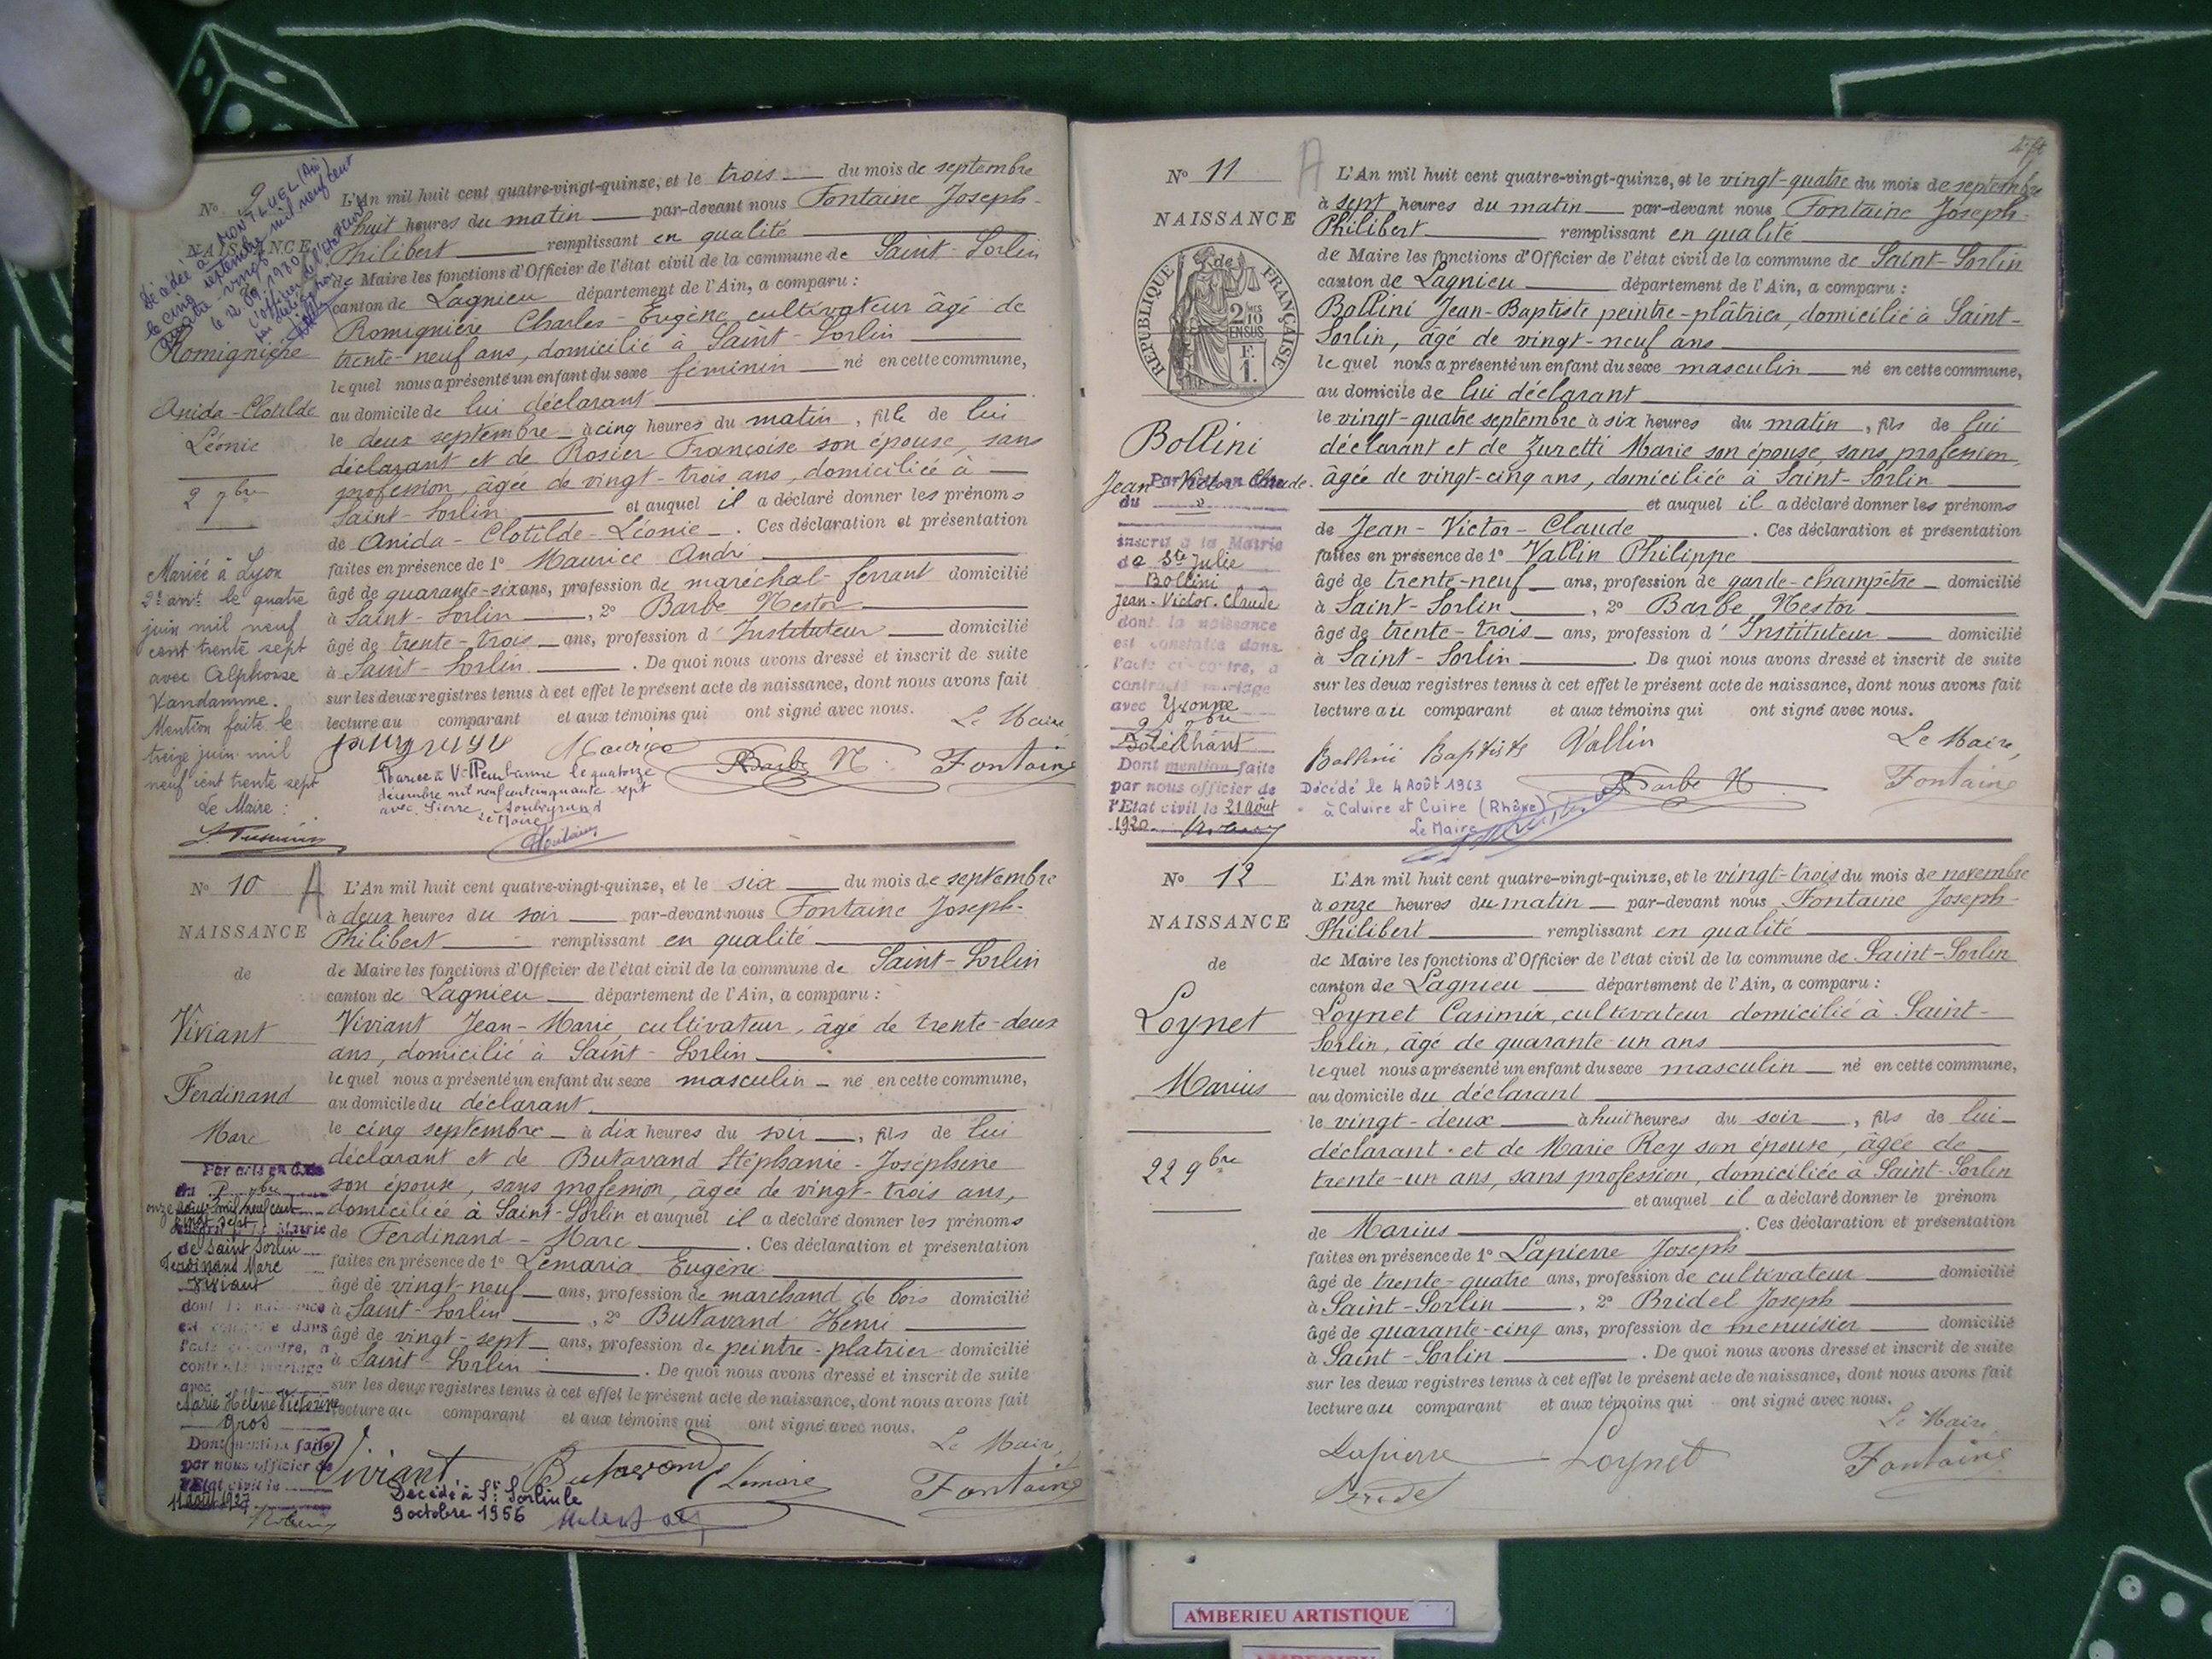 N° 9
NAISSANCE
Décédée à MONTLUEL (Ain)
le cinq septembre mil neuf cent
quatre-vingt
le 12.09.1980
Romignière
Anida-Clotilde
Léonie
2 7bre
Mariée à Lyon
2e arrt le quatre
juin mil neuf
cent trente sept
avec Alphonse
Vandamme.
Mention faite le
treize juin mil
neuf cent trente sept
Le Maire :
L'An mil huit cent quatre-vingt-quinze, et le trois du mois de septembre
huit heures du matin par-devant nous Fontaine Joseph-
Philibert remplissant en qualité
de Maire les fonctions d'Officier de l'état civil de la commune de Saint-Sorlin
canton de Lagnieu département de l'Ain, a comparu :
Romignière Charles-Eugène cultivateur âgé de
trente-neuf ans, domicilié à Saint-Sorlin
lequel nous a présenté un enfant du sexe féminin né en cette commune,
au domicile de lui déclarant
le deux septembre à cinq heures du matin, fille de lui
déclarant et de Rosier Françoise son épouse, sans
profession, âgée de vingt-trois ans, domiciliée à
Saint-Sorlin et auquel il a déclaré donner les prénoms
de Anida-Clotilde-Léonie. Ces déclaration et présentation
faites en présence de 1° Maurice André
âgé de quarante-six ans, profession de maréchal-ferrant domicilié
à Saint-Sorlin, 2° Barbe Nestor
âgé de trente-trois ans, profession d'Instituteur domicilié
à Saint-Sorlin. De quoi nous avons dressé et inscrit de suite
sur les deux registres tenus à cet effet le présent acte de naissance, dont nous avons fait
lecture au comparant et aux témoins qui ont signé avec nous.
Le Maire
Maurice Barbe N. Fontaine
Mariée à Villeurbanne le quatorze
décembre mil neuf cent cinquante sept
avec Pierre
Le Maire
N° 10 A
NAISSANCE
de
Viviant
Ferdinand
Marc
Par acte en date
du
onze août mil neuf cent
vingt sept
inscrit à la Mairie
de Saint Sorlin
Ferdinand Marc
Viviant
dont la naissance
est constatée dans
l'acte ci-contre, a
contracté mariage
avec
Marie Hélène Victorine
Gros
Dont mention faite
par nous officier de
l'Etat civil le
11 août 1927
L'An mil huit cent quatre-vingt-quinze, et le six du mois de septembre
à deux heures du soir par-devant nous Fontaine Joseph-
Philibert remplissant en qualité
de Maire les fonctions d'Officier de l'état civil de la commune de Saint-Sorlin
canton de Lagnieu département de l'Ain, a comparu :
Viviant Jean-Marie, cultivateur, âgé de trente-deux
ans, domicilié à Saint-Sorlin
lequel nous a présenté un enfant du sexe masculin né en cette commune,
au domicile du déclarant
le cinq septembre à dix heures du soir, fils de lui
déclarant et de Butavand Stéphanie-Joséphine
son épouse, sans profession, âgée de vingt-trois ans,
domiciliée à Saint-Sorlin et auquel il a déclaré donner les prénoms
de Ferdinand-Marc. Ces déclaration et présentation
faites en présence de 1° Lemaria Eugène
âgé de vingt-neuf ans, profession de marchand de bois domicilié
à Saint-Sorlin, 2° Butavand Henri
âgé de vingt-sept ans, profession de peintre-platrier domicilié
à Saint-Sorlin. De quoi nous avons dressé et inscrit de suite
sur les deux registres tenus à cet effet le présent acte de naissance, dont nous avons fait
lecture au comparant et aux témoins qui ont signé avec nous.
Le Maire,
Viviant Butavand Fontaine
Décédé à St Sorlin le
9 octobre 1956
N° 11 A
NAISSANCE
de
RÉPUBLIQUE FRANÇAISE
2/10 EN SUS
F. 1.
Bollini
Jean-Victor-Claude.
du
inscrit à la Mairie
de Ste Julie
Bollini
Jean-Victor-Claude
dont la naissance
est constatée dans
l'acte ci-contre, a
contracté mariage
avec Yvonne
Dont mention faite
par nous officier de
l'Etat civil le 21 août
1920
L'An mil huit cent quatre-vingt-quinze, et le vingt-quatre du mois de septembre
à sept heures du matin par-devant nous Fontaine Joseph-
Philibert remplissant en qualité
de Maire les fonctions d'Officier de l'état civil de la commune de Saint-Sorlin
canton de Lagnieu département de l'Ain, a comparu :
Bollini Jean-Baptiste peintre-plâtrier, domicilié à Saint-
Sorlin, âgé de vingt-neuf ans
lequel nous a présenté un enfant du sexe masculin né en cette commune,
au domicile de lui déclarant
le vingt-quatre septembre à six heures du matin, fils de lui
déclarant et de Zuretti Marie son épouse, sans profession,
âgée de vingt-cinq ans, domiciliée à Saint-Sorlin
et auquel il a déclaré donner les prénoms
de Jean-Victor-Claude. Ces déclaration et présentation
faites en présence de 1° Vallin Philippe
âgé de trente-neuf ans, profession de garde-champêtre domicilié
à Saint-Sorlin, 2° Barbe Nestor
âgé de trente-trois ans, profession d'Instituteur domicilié
à Saint-Sorlin. De quoi nous avons dressé et inscrit de suite
sur les deux registres tenus à cet effet le présent acte de naissance, dont nous avons fait
lecture au comparant et aux témoins qui ont signé avec nous.
Le Maire,
Bollini Baptiste Vallin Barbe N. Fontaine
Décédé le 4 Août 1963
à Caluire et Cuire (Rhône)
Le Maire
N° 12
NAISSANCE
de
Loynet
Marius
22 9bre
L'An mil huit cent quatre-vingt-quinze, et le vingt-trois du mois de novembre
à onze heures du matin par-devant nous Fontaine Joseph-
Philibert remplissant en qualité
de Maire les fonctions d'Officier de l'état civil de la commune de Saint-Sorlin
canton de Lagnieu département de l'Ain, a comparu :
Loynet Casimir, cultivateur domicilié à Saint-
Sorlin, âgé de quarante-un ans
lequel nous a présenté un enfant du sexe masculin né en cette commune,
au domicile du déclarant
le vingt-deux à huit heures du soir, fils de lui
déclarant et de Marie Rey son épouse, âgée de
trente-un ans, sans profession, domiciliée à Saint-Sorlin
et auquel il a déclaré donner le prénom
de Marius. Ces déclaration et présentation
faites en présence de 1° Lapierre Joseph
âgé de trente-quatre ans, profession de cultivateur domicilié
à Saint-Sorlin, 2° Bridel Joseph
âgé de quarante-cinq ans, profession de menuisier domicilié
à Saint-Sorlin. De quoi nous avons dressé et inscrit de suite
sur les deux registres tenus à cet effet le présent acte de naissance, dont nous avons fait
lecture au comparant et aux témoins qui ont signé avec nous.
Le Maire,
Lapierre Loynet Fontaine
Bridel
AMBERIEU ARTISTIQUE